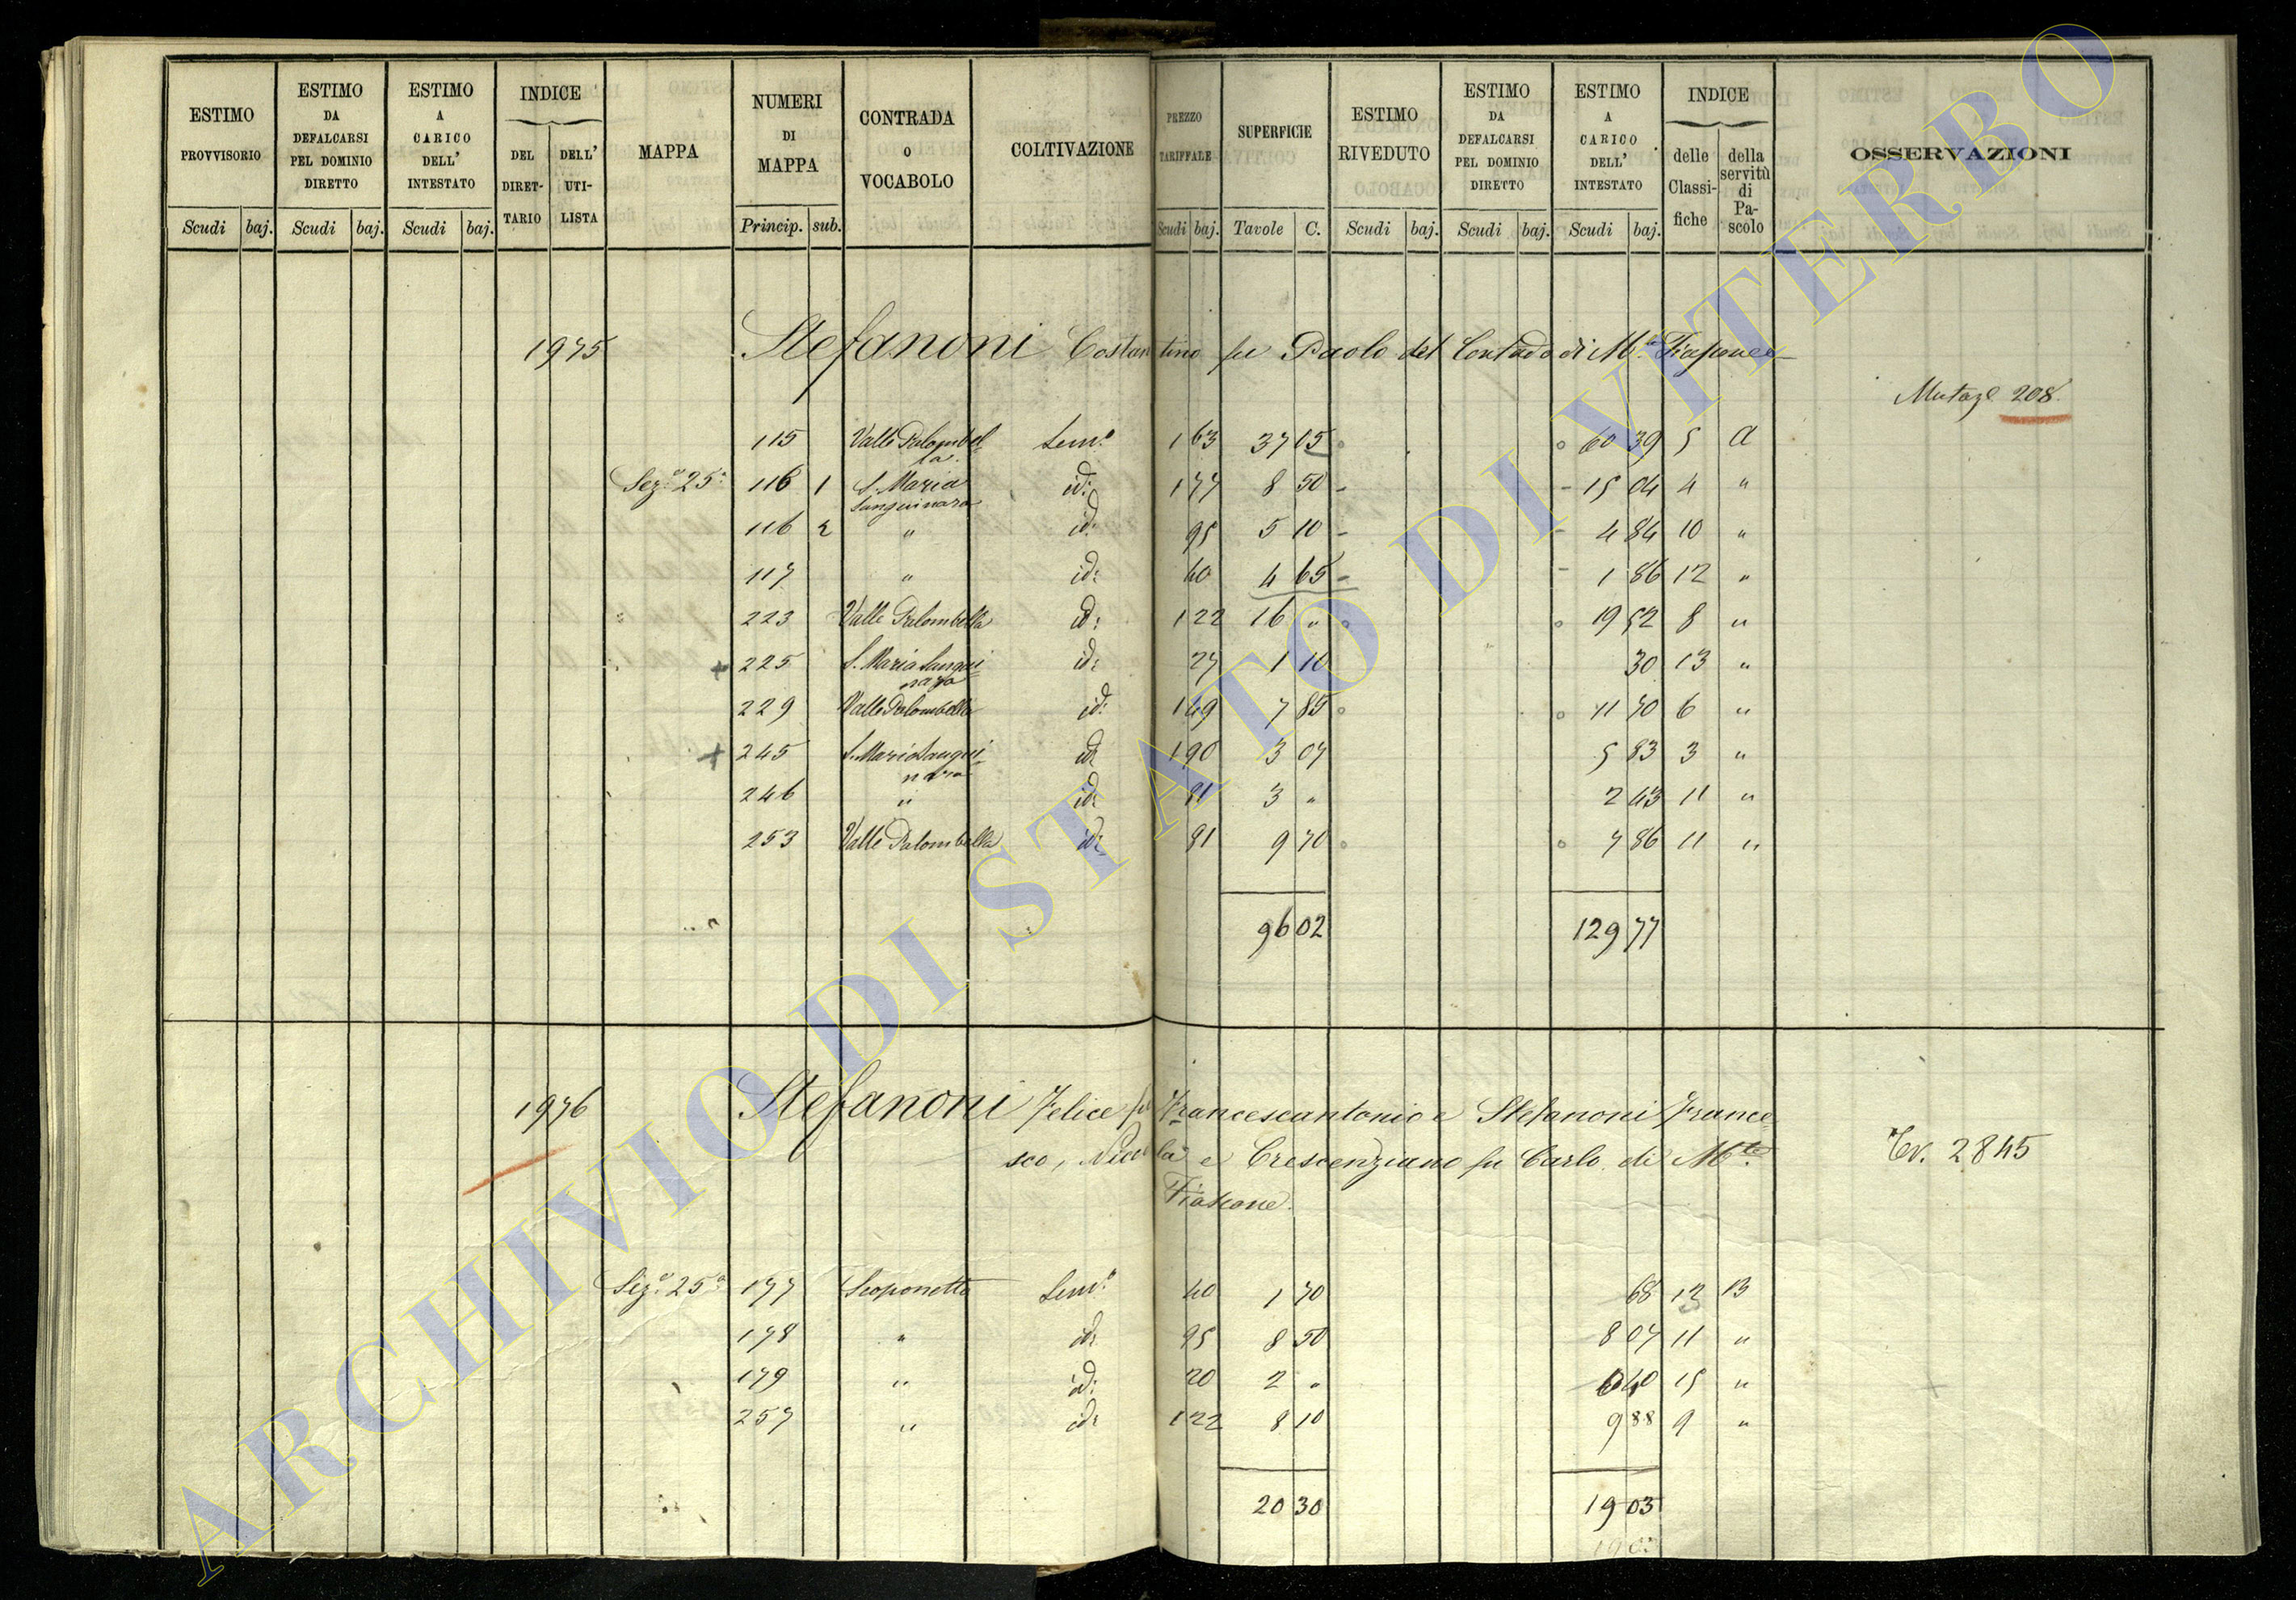 ESTIMO PROVVISORIO Scudi baj.
ESTIMO DA DEFALCARSI PEL DOMINIO DIRETTO Scudi baj.
ESTIMO A CARICO DELL' INTESTATO Scudi baj.
INDICE DEL DIRETTARIO DELL' UTILISTA
MAPPA
NUMERI DI MAPPA Princip. sub.
CONTRADA O VOCABOLO
COLTIVAZIONE
PREZZO TARIFFALE Scudi baj.
SUPERFICIE Tavole C.
ESTIMO RIVEDUTO Scudi baj.
ESTIMO DA DEFALCARSI PEL DOMINIO DIRETTO Scudi baj.
ESTIMO A CARICO DELL' INTESTATO Scudi baj.
INDICE delle Classifiche della servitù di Pascolo
OSSERVAZIONI
1975 Stefanoni Costantino fu Paolo del Contado di M.te Fiascone
Mutaz.e 208
115 Valle Palombella Sem.o 1 63 37 15 60 39 5 A
Sez.e 25a 116 1 S. Maria Sanguinara id: 1 77 8 50 - - 15 04 4 "
116 2 " id: 95 5 10 - - 4 84 10 "
117 " id: 40 4 65 - - 1 86 12 "
" 223 Valle Palombella id: 1 22 16 " 19 52 8 "
+ 225 S. Maria Sanguinara id: 27 1 10 30 13 "
229 Valle Palombella id: 1 49 7 85 11 70 6 "
+ 245 S. Maria Sanguinara id: 1 90 3 07 5 83 3 "
246 " id: 81 3 " 2 43 11 "
253 Valle Palombella id: 81 9 70 7 86 11 "
96 02 129 77
1976 Stefanoni Felice fu Francescantonio e Stefanoni France-
sco, Nicola e Crescenziano fu Carlo di M.te
Fiascone.
Tr. 2845
Sez.e 25a 177 Scoponetto Sem.o 40 1 70 68 12 B
178 " id: 95 8 50 8 07 11 "
179 " id: 20 2 " 40 15 "
257 " id: 1 22 8 10 9 88 9 "
20 30 19 03
ARCHIVIO DI STATO DI VITERBO